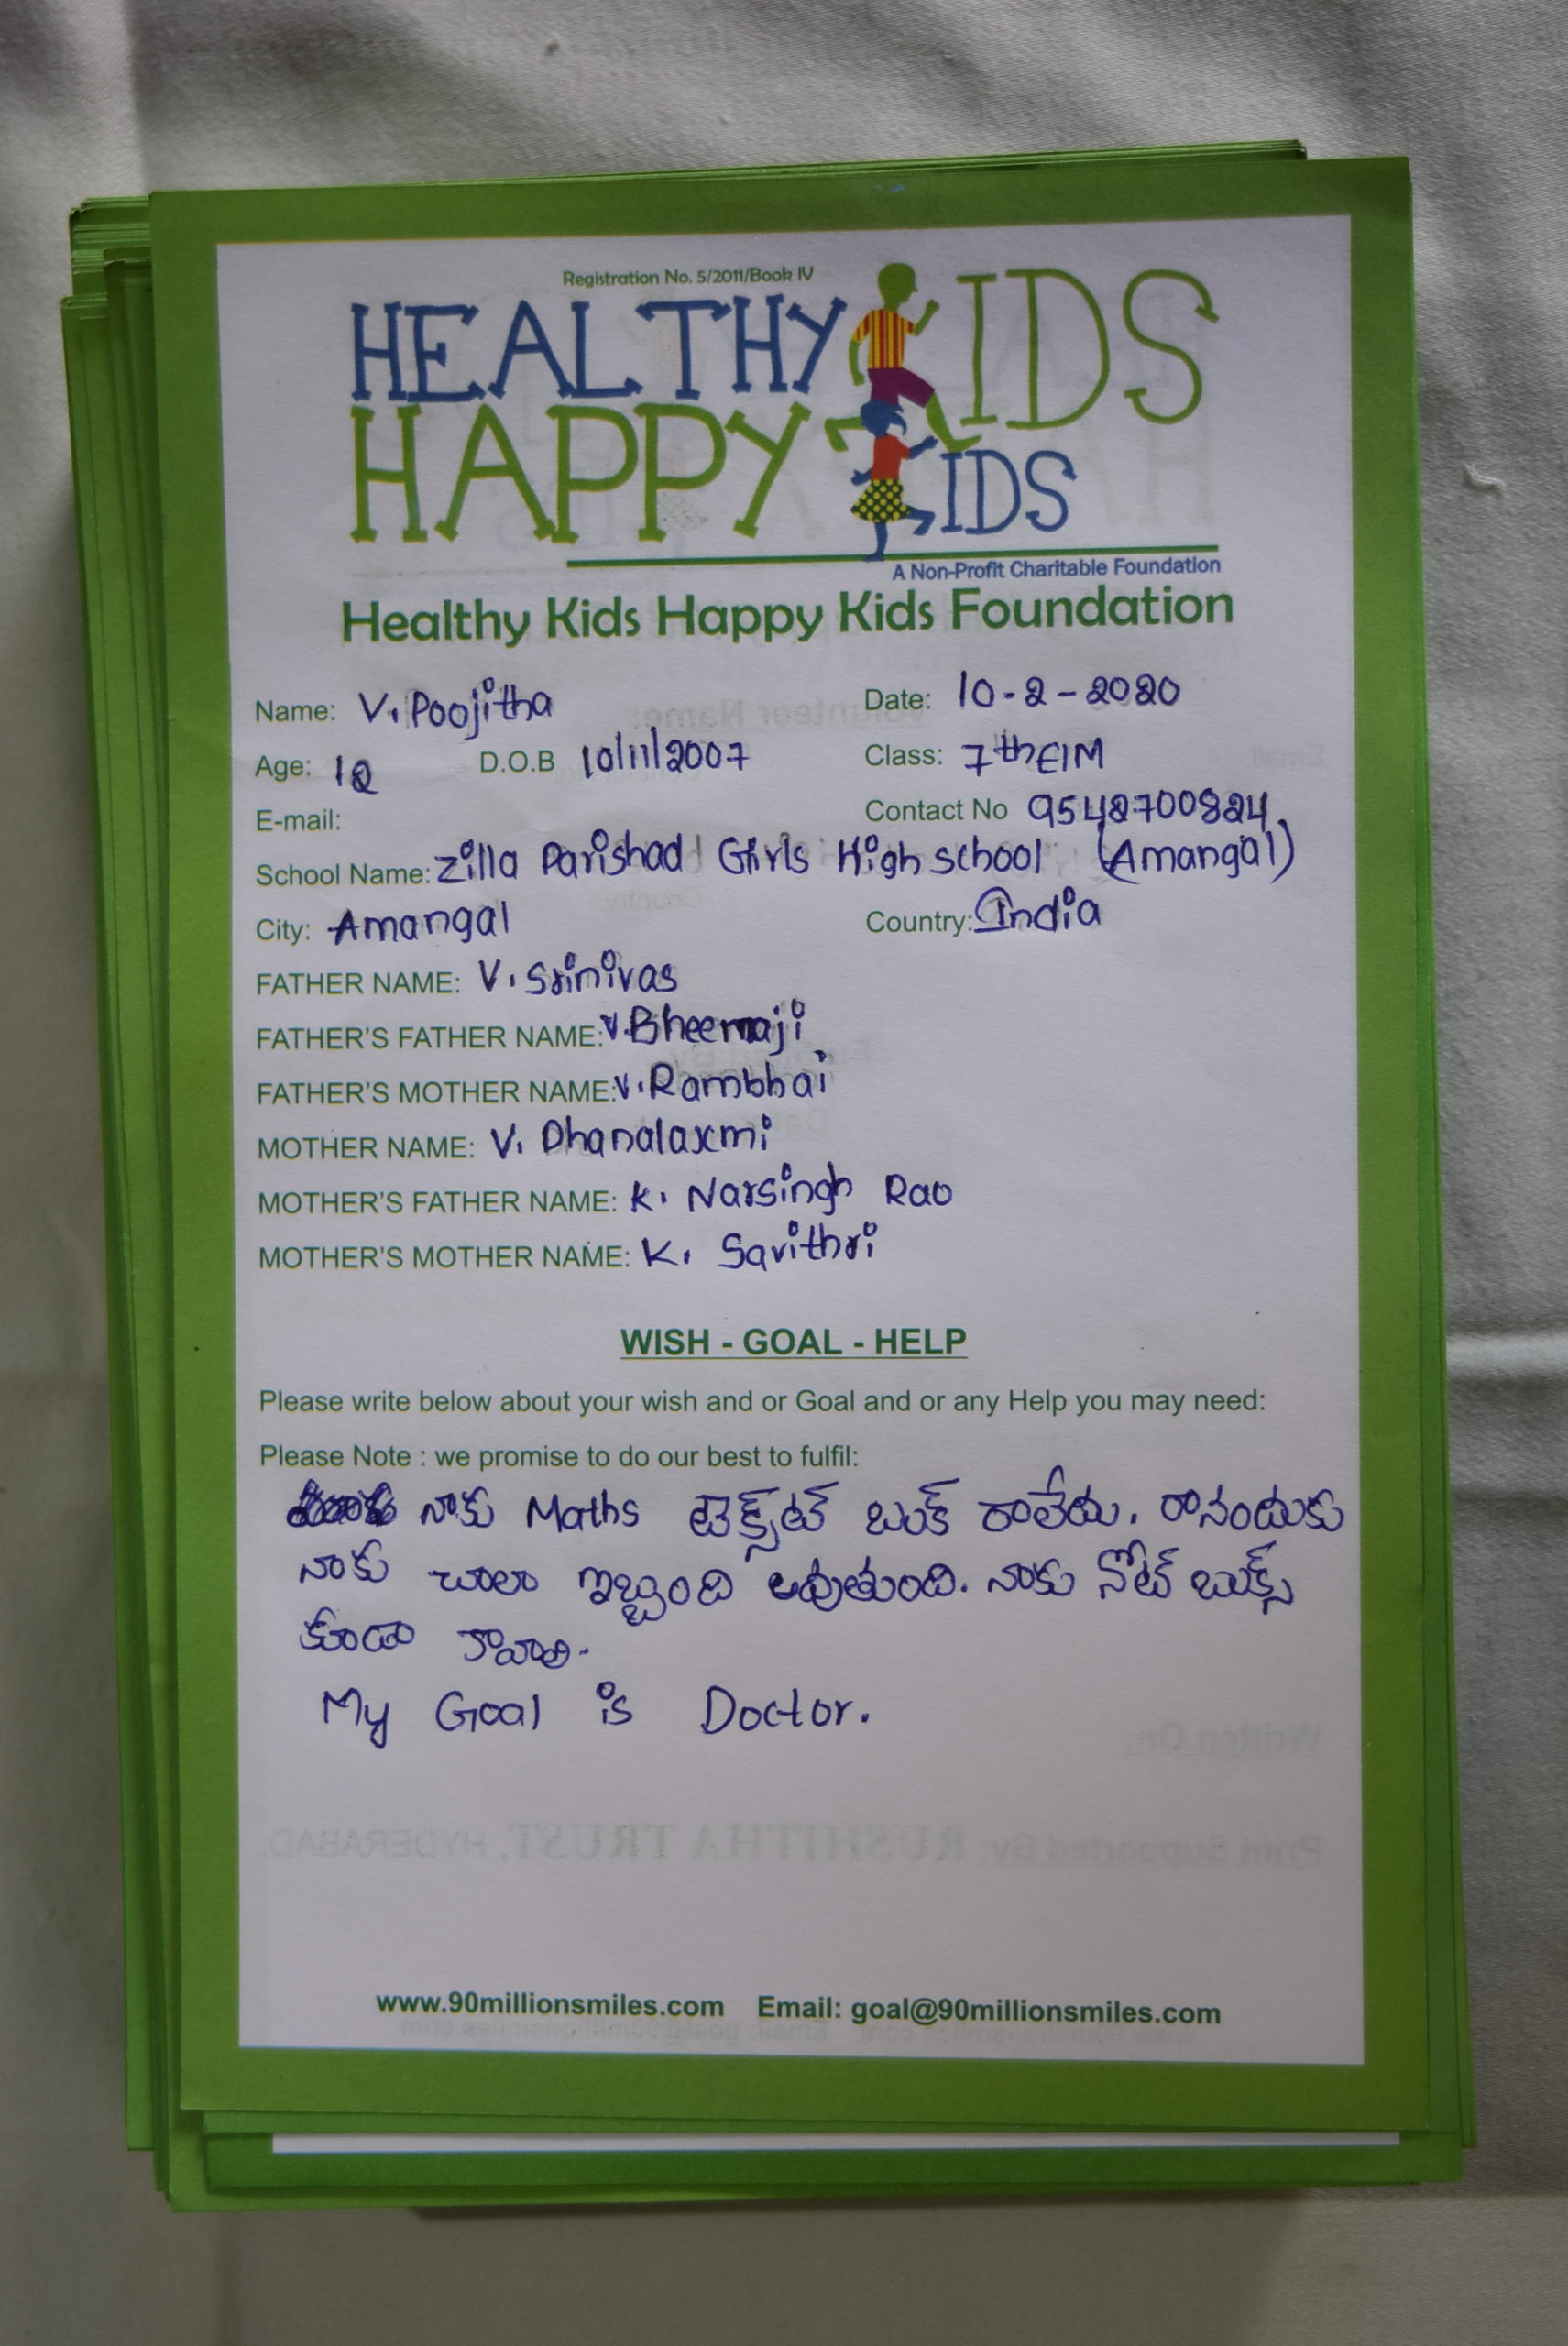 Registration No. 5/2011/Book IV
HEALTHY KIDS
HAPPY KIDS
A Non-Profit Charitable Foundation
Healthy Kids Happy Kids Foundation
Name: V. Poojitha Date: 10-2-2020
Age: 12 D.O.B 10/11/2007 Class: 7th E/M
E-mail: Contact No 9542700824
School Name: Zilla Parishad Girls High school (Amangal)
City: Amangal Country: India
FATHER NAME: V. Srinivas
FATHER'S FATHER NAME: V. Bheemaji
FATHER'S MOTHER NAME: V. Rambhai
MOTHER NAME: V. Dhanalaxmi
MOTHER'S FATHER NAME: K. Narsingh Rao
MOTHER'S MOTHER NAME: K. Savithri
WISH - GOAL - HELP
Please write below about your wish and or Goal and or any Help you may need:
Please Note : we promise to do our best to fulfil:
నాకు Maths టెక్స్‌టట్ బుక్ రాలేదు. రానందుకు
నాకు చాలా ఇబ్బంది అవుతుంది. నాకు నోట్ బుక్స్
కూడా కావాలి.
My Goal is Doctor.
Written On:
Print Supported By: RUSHITHA TRUST, HYDERABAD.
www.90millionsmiles.com Email: goal@90millionsmiles.com